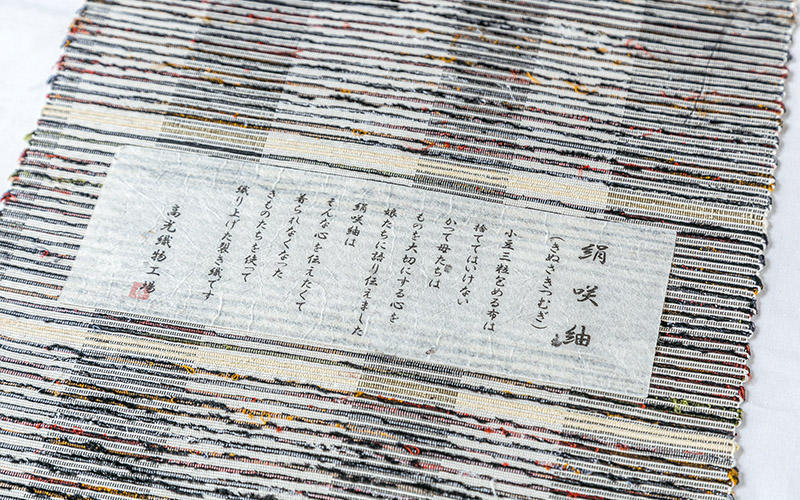 絹咲紬
(きぬさきつむぎ)
小豆三粒包める布は
捨ててはいけない
かつて母たちは
ものを大切にする心を
娘たちに語り伝えました
絹咲紬は
そんな心を伝えたくて
着られなくなった
きものたちを使って
織り上げた裂き織です
高光織物工場